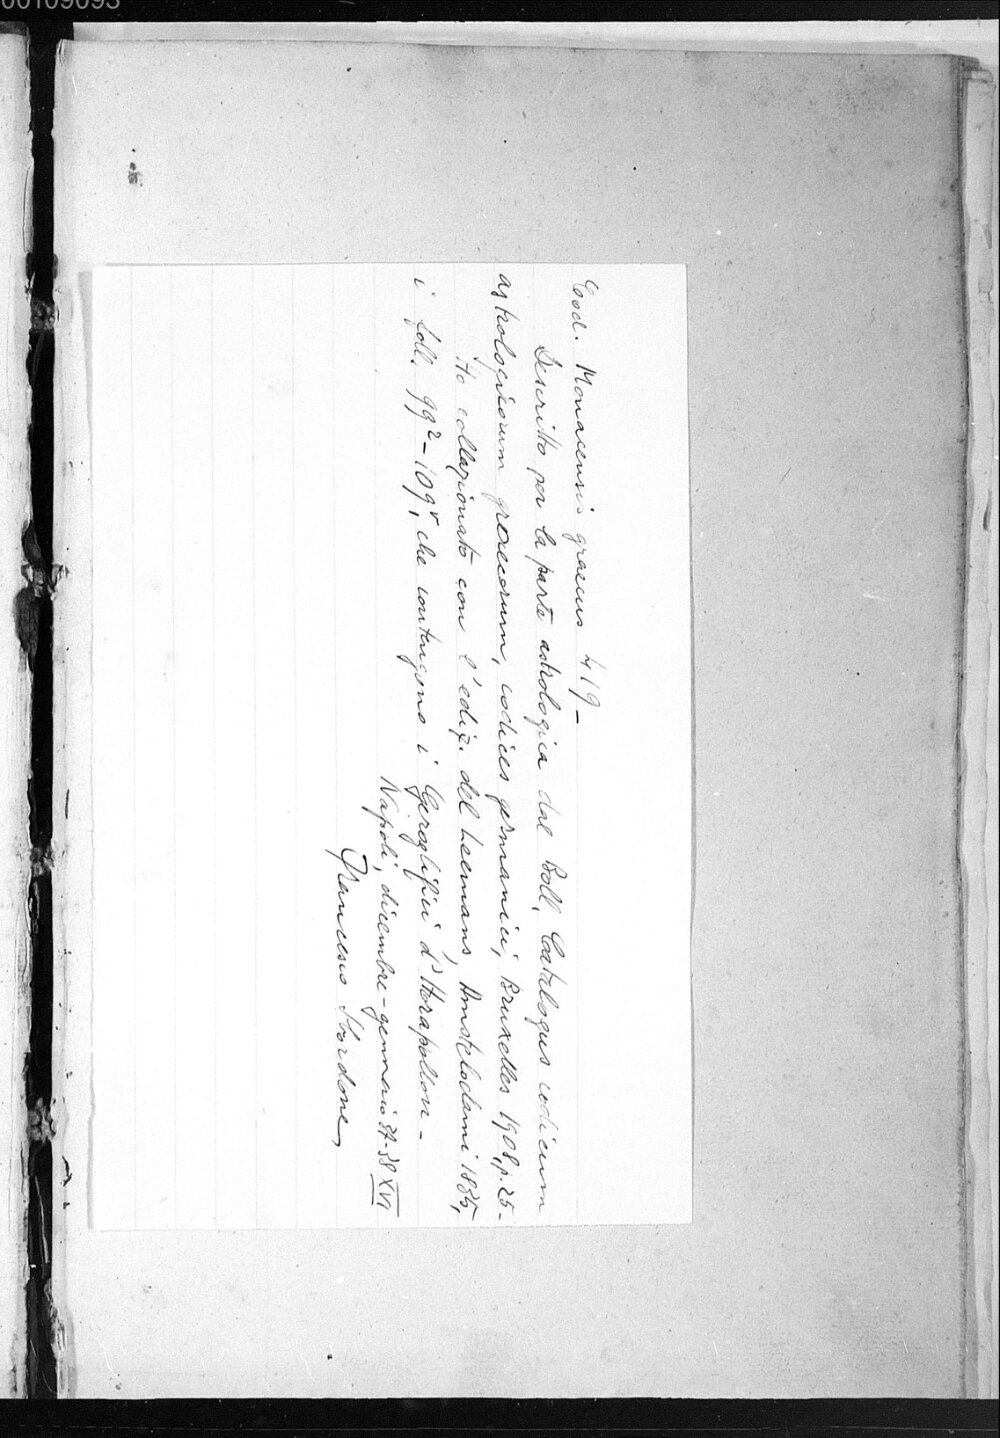 00109093
Cod. Monacensis graecus 419 -
Descritto per la parte astrologica dal Boll, Catalogus codicum
astrologorum graecorum, codices germanici, Bruxelles 1908, p. 25 -
Ho collazionato con l'ediz. del Leemans, Amstelodami 1835,
i foll. 99r - 109v, che contengono i Geroglifici d'Horapollon -
Napoli, dicembre - gennaio 37-38 XVI
Francesco Sbordone